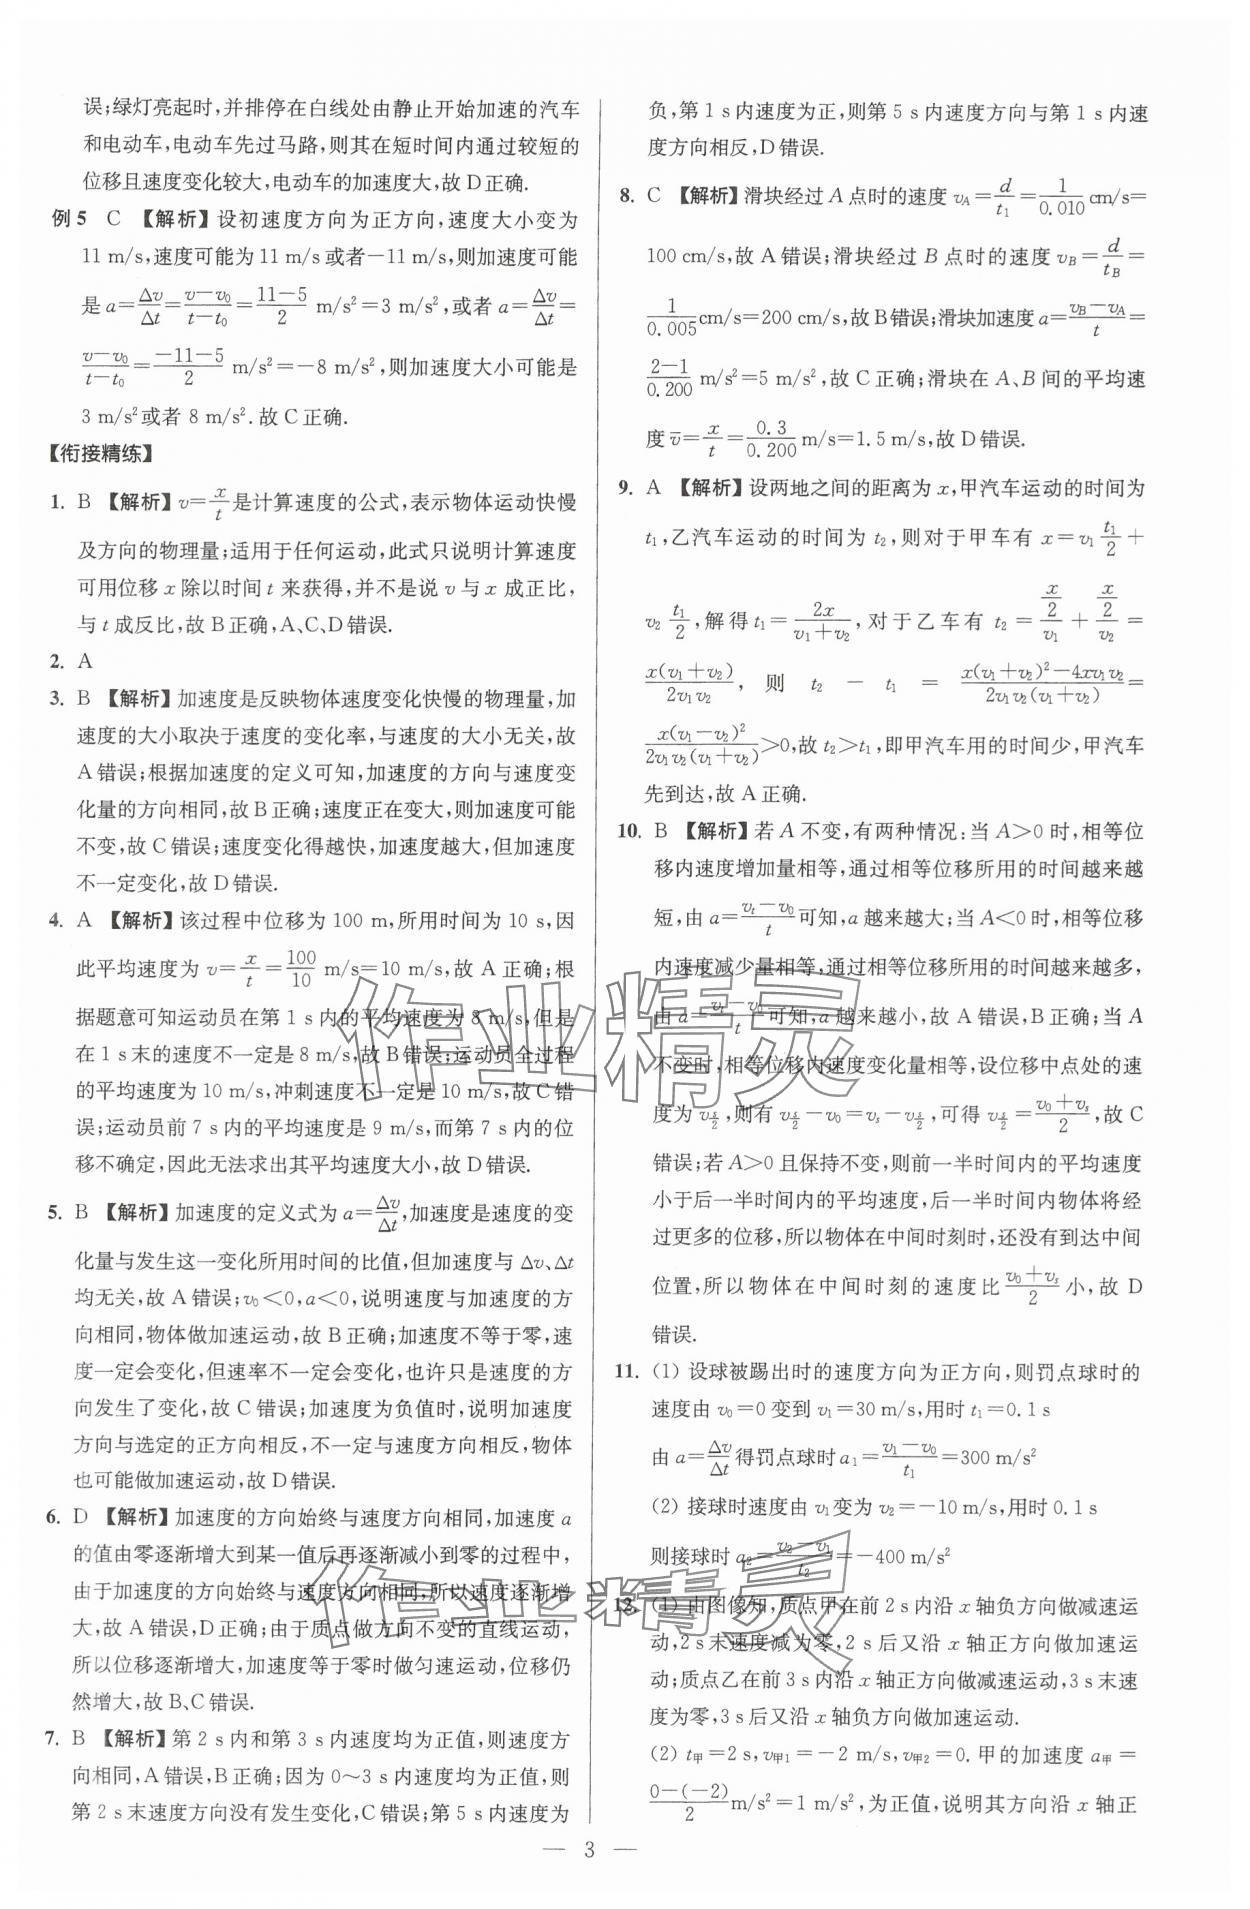 误;绿灯亮起时,并排停在白线处由静止开始加速的汽车
和电动车,电动车先过马路,则其在短时间内通过较短的
位移且速度变化较大,电动车的加速度大,故D正确.
例5 C 【解析】设初速度方向为正方向,速度大小变为
11 m/s,速度可能为11 m/s或者-11 m/s,则加速度可能
是a=Δv/Δt=(v-v₀)/(t-t₀)=(11-5)/2 m/s²=3 m/s²,或者a=Δv/Δt=
(v-v₀)/(t-t₀)=(-11-5)/2 m/s²=-8 m/s²,则加速度大小可能是
3 m/s²或者8 m/s².故C正确.
【衔接精练】
1. B 【解析】v=x/t是计算速度的公式,表示物体运动快慢
及方向的物理量;适用于任何运动,此式只说明计算速度
可用位移x除以时间t来获得,并不是说v与x成正比,
与t成反比,故B正确,A、C、D错误.
2. A
3. B 【解析】加速度是反映物体速度变化快慢的物理量,加
速度的大小取决于速度的变化率,与速度的大小无关,故
A错误;根据加速度的定义可知,加速度的方向与速度变
化量的方向相同,故B正确;速度正在变大,则加速度可能
不变,故C错误;速度变化得越快,加速度越大,但加速度
不一定变化,故D错误.
4. A 【解析】该过程中位移为100 m,所用时间为10 s,因
此平均速度为v=x/t=100/10 m/s=10 m/s,故A正确;根
据题意可知运动员在第1 s内的平均速度为8 m/s,但是
在1 s末的速度不一定是8 m/s,故B错误;运动员全过程
的平均速度为10 m/s,冲刺速度不一定是10 m/s,故C错
误;运动员前7 s内的平均速度是9 m/s,而第7 s内的位
移不确定,因此无法求出其平均速度大小,故D错误.
5. B 【解析】加速度的定义式为a=Δv/Δt,加速度是速度的变
化量与发生这一变化所用时间的比值,但加速度与Δv、Δt
均无关,故A错误;v₀<0,a<0,说明速度与加速度的方
向相同,物体做加速运动,故B正确;加速度不等于零,速
度一定会变化,但速率不一定变化,也许只是速度的方
向发生了变化,故C错误;加速度为负值时,说明加速度
方向与选定的正方向相反,不一定与速度方向相反,物体
也可能做加速运动,故D错误.
6. D 【解析】加速度的方向始终与速度方向相同,加速度a
的值由零逐渐增大到某一值后再逐渐减小到零的过程中,
由于加速度的方向始终与速度方向相同,所以速度逐渐增
大,故A错误,D正确;由于质点做方向不变的直线运动,
所以位移逐渐增大,加速度等于零时做匀速运动,位移仍
然增大,故B、C错误.
7. B 【解析】第2 s内和第3 s内速度均为正值,则速度方
向相同,A错误,B正确;因为0～3 s内速度均为正值,则
第2 s末速度方向没有发生变化,C错误;第5 s内速度为
负,第1 s内速度为正,则第5 s内速度方向与第1 s内速
度方向相反,D错误.
8. C 【解析】滑块经过A点时的速度v_A=d/t₁=1/0.010 cm/s=
100 cm/s,故A错误;滑块经过B点时的速度v_B=d/t_B=
1/0.005 cm/s=200 cm/s,故B错误;滑块加速度a=(v_B-v_A)/t=
(2-1)/0.200 m/s²=5 m/s²,故C正确;滑块在A、B间的平均速
度v̄=x/t=0.3/0.200 m/s=1.5 m/s,故D错误.
9. A 【解析】设两地之间的距离为x,甲汽车运动的时间为
t₁,乙汽车运动的时间为t₂,则对于甲车有x=v₁ t₁/2+
v₂ t₁/2,解得t₁=2x/(v₁+v₂),对于乙车有t₂=(x/2)/v₁+(x/2)/v₂=
x(v₁+v₂)/2v₁v₂,则t₂-t₁=[x(v₁+v₂)²-4xv₁v₂]/2v₁v₂(v₁+v₂)=
x(v₁-v₂)²/2v₁v₂(v₁+v₂)>0,故t₂>t₁,即甲汽车用的时间少,甲汽车
先到达,故A正确.
10. B 【解析】若A不变,有两种情况:当A>0时,相等位
移内速度增加量相等,通过相等位移所用的时间越来越
短,由a=(v_t-v₀)/t可知,a越来越大;当A<0时,相等位移
内速度减少量相等,通过相等位移所用的时间越来越多,
由a=(v_t-v₀)/t可知,a越来越小,故A错误,B正确;当A
不变时,相等位移内速度变化量相等,设位移中点处的速
度为v_(s/2),则有v_(s/2)-v₀=v_s-v_(s/2),可得v_(s/2)=(v₀+v_s)/2,故C
错误;若A>0且保持不变,则前一半时间内的平均速度
小于后一半时间内的平均速度,后一半时间内物体将经
过更多的位移,所以物体在中间时刻时,还没有到达中间
位置,所以物体在中间时刻的速度比(v₀+v_s)/2小,故D
错误.
11. (1) 设球被踢出时的速度方向为正方向,则罚点球时的
速度由v₀=0变到v₁=30 m/s,用时t₁=0.1 s
由a=Δv/Δt得罚点球时a₁=(v₁-v₀)/t₁=300 m/s²
(2) 接球时速度由v₁变为v₂=-10 m/s,用时0.1 s
则接球时a₂=(v₂-v₁)/t₂=-400 m/s²
12. (1) 由图像知,质点甲在前2 s内沿x轴负方向做减速运
动,2 s末速度减为零,2 s后又沿x轴正方向做加速运
动;质点乙在前3 s内沿x轴正方向做减速运动,3 s末速
度为零,3 s后又沿x轴负方向做加速运动.
(2) t甲=2 s,v甲₁=-2 m/s,v甲₂=0.甲的加速度a甲=
[0-(-2)]/2 m/s²=1 m/s²,为正值,说明其方向沿x轴正
— 3 —
作业精灵
作业精灵